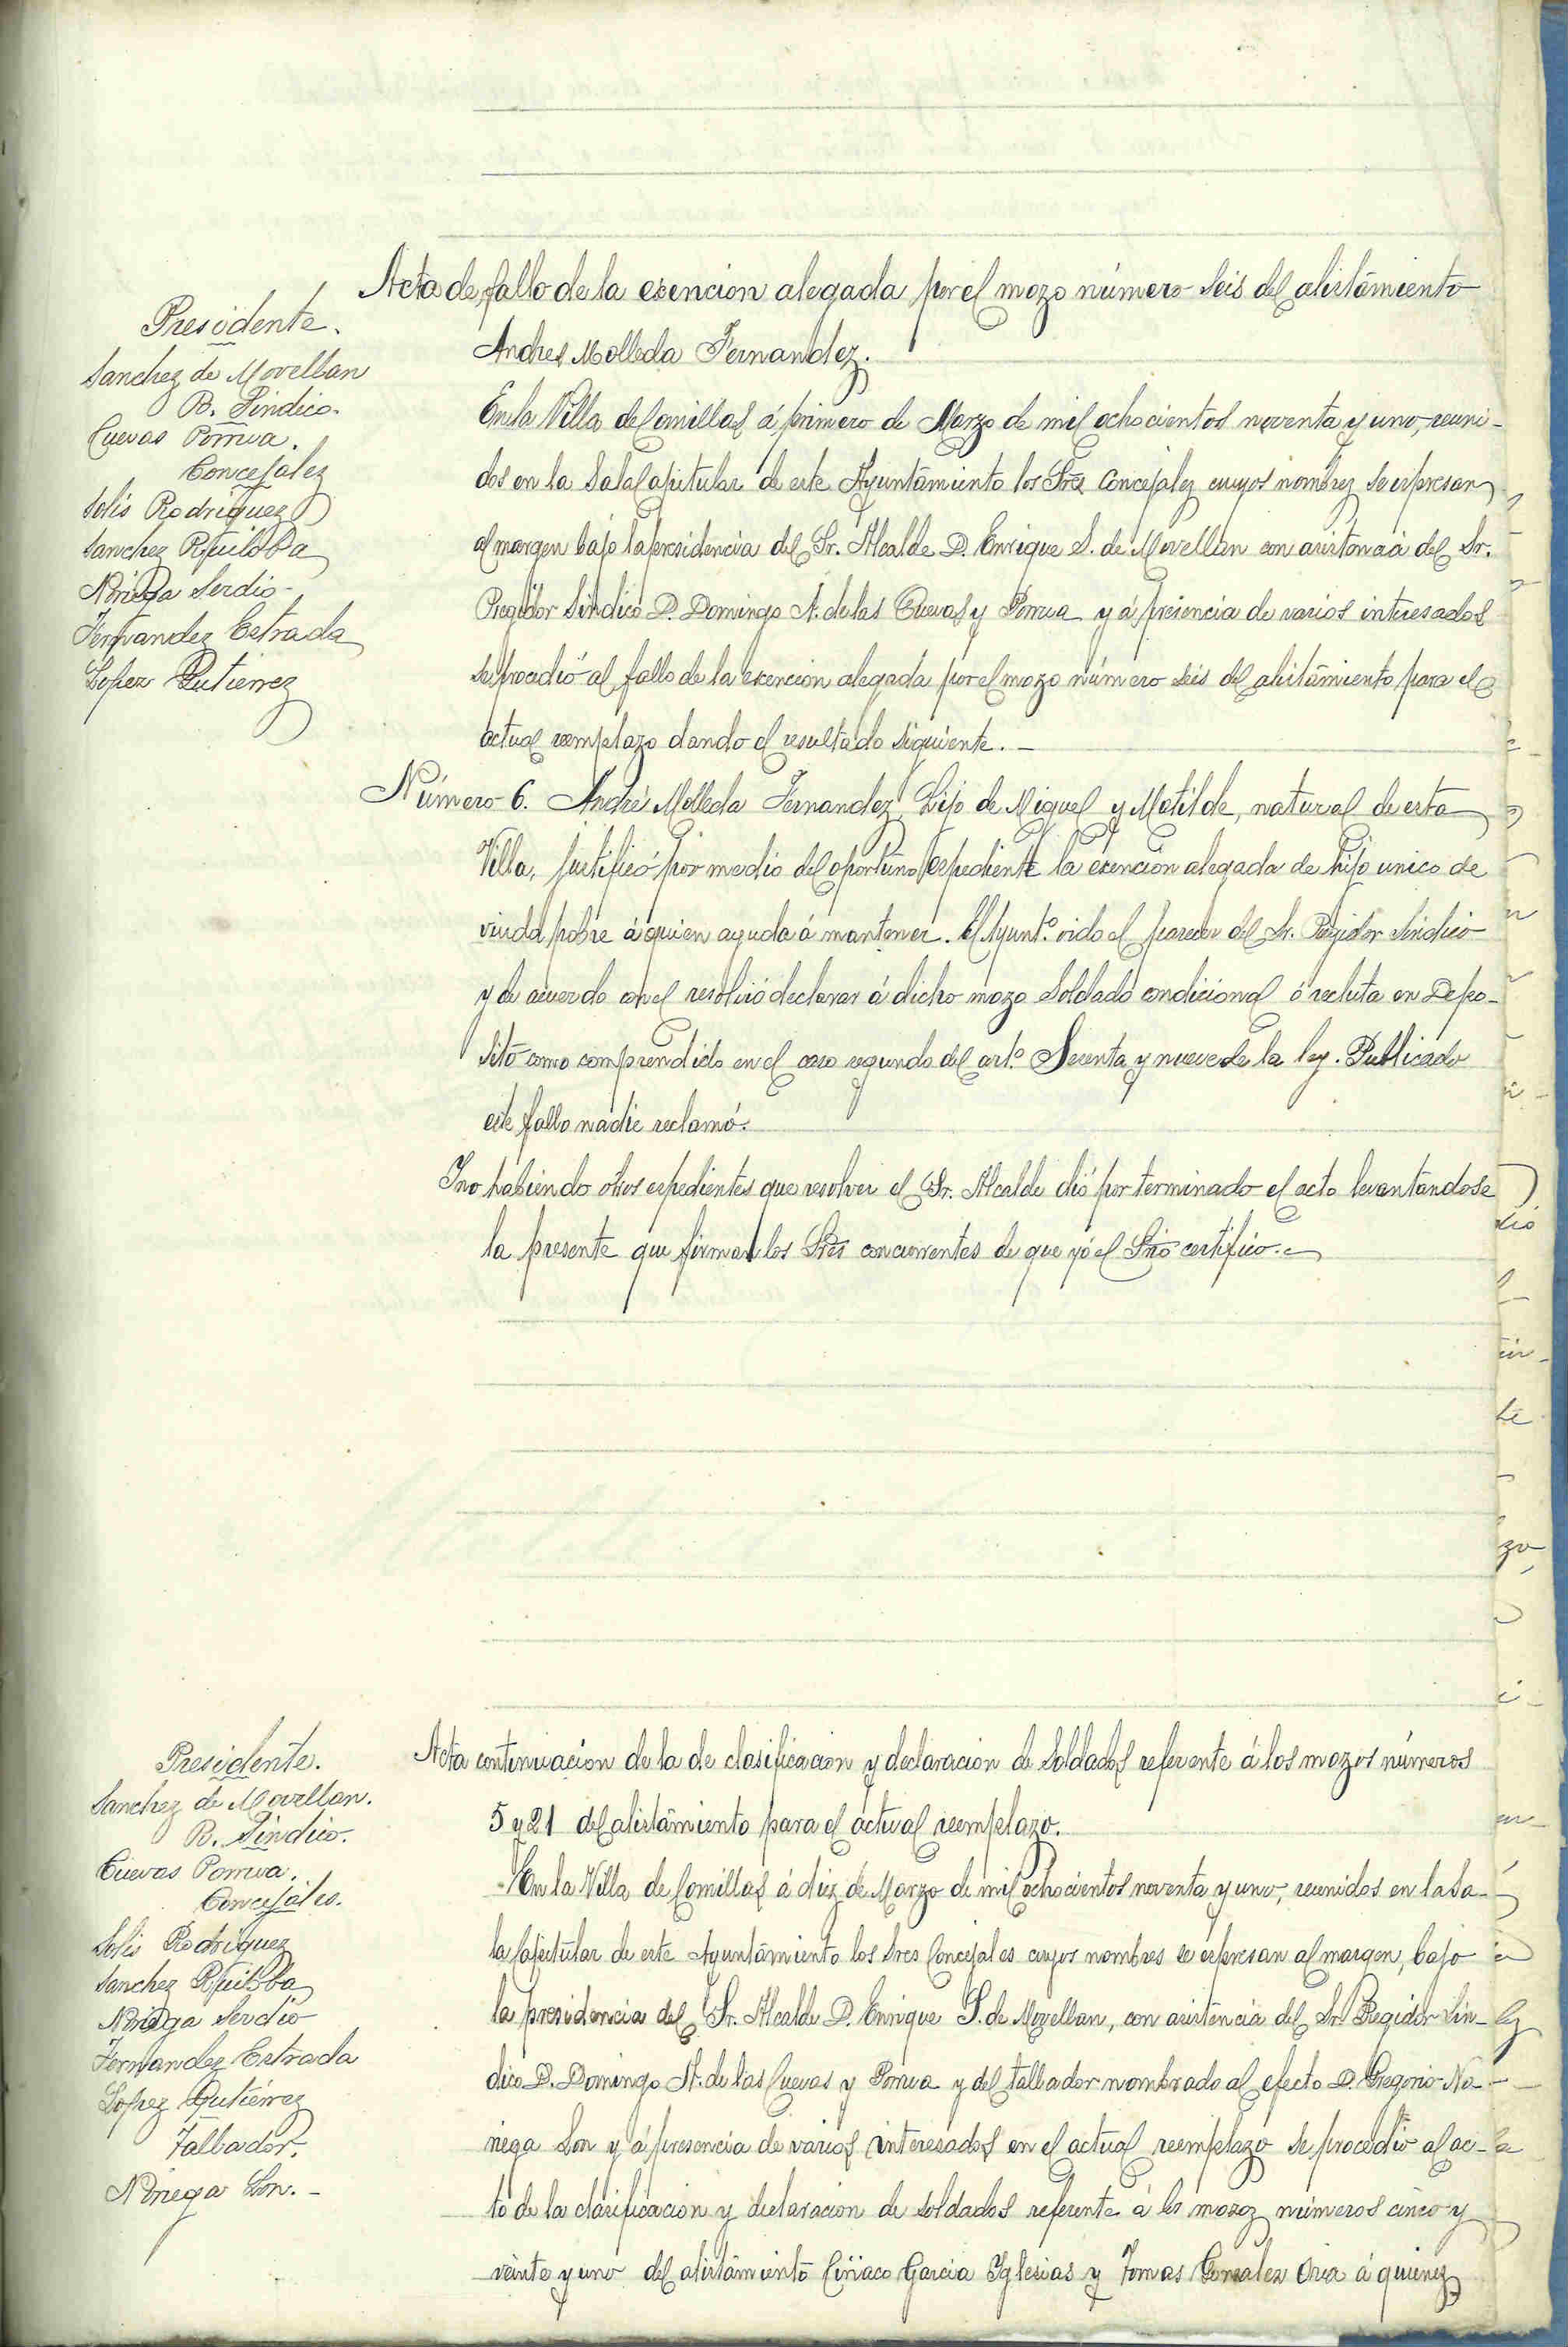 Acta de fallo de la exención alegada por el mozo número seis del alistamiento
Andres Molleda Fernandez.
Presidente.
Sanchez de Movellan
R. Sindico.
Cuevas Porrua.
Concejalez
Solis Rodriguez
Sanchez Ruiloba
Noriega Serdio
Fernandez Estrada
Lopez Gutierrez
En la Villa de Comillas á primero de Marzo de mil ochocientos noventa y uno, reuni-
dos en la Sala Capitular de este Ayuntamiento los Sres Concejalez cuyos nombrez se espresan
al margen bajo la presidencia del Sr. Alcalde D. Enrique S. de Movellan con asistencia del Sr.
Regidor Sindico D. Domingo A. de las Cuevas y Porrua y á presencia de varios interesados
se procedió al fallo de la exencion alegada por el mozo número seis del alistamiento para el
actual reemplazo dando el resultado siguiente.
Número 6. André Molleda Fernandez, hijo de Miguel y Matilde, natural de esta
Villa, justificó por medio del oportuno espediente la exención alegada de hijo unico de
viuda pobre á quien ayuda á mantener. El Ayunt.º oido el parecer del Sr. Regidor Sindico
y de acuerdo con el resolvió declarar á dicho mozo Soldado condicional ó recluta en Depo-
sito como comprendido en el caso segundo del art.º Sesenta y nueve de la ley. Publicado
este fallo nadie reclamó.
Y no habiendo otros espedientes que resolver el Sr. Alcalde dió por terminado el acto levantandose
la presente que firman los Sres concurrentes de que yó el Srio certifico.
Acta continuacion de la de clasificacion y declaracion de Soldados referente á los mozos números
5 y 21 del alistamiento para el actual reemplazo.
Presidente.
Sanchez de Movellan.
R. Sindico.
Cuevas Porrua.
Concejales.
Solis Rodriguez
Sanchez Ruiloba
Noriega Serdio
Fernandez Estrada
Lopez Gutiérrez
Tallador.
Noriega Son.
En la Villa de Comillas á diez de Marzo de mil ochocientos noventa y uno, reunidos en la Sa-
la Capitular de este Ayuntamiento los Sres Concejales cuyos nombres se espresan al margen, bajo
la presidencia del Sr. Alcalde D. Enrique S. de Movellan, con asistencia del Sr. Regidor Sin-
dico D. Domingo A. de las Cuevas y Porrua y del tallador nombrado al efecto D. Gregorio No-
riega Son y á presencia de varios interesados en el actual reemplazo se procedió al ac-
to de la clasificacion y declaracion de soldados referente á los mozoz números cinco y
veinte y uno del alistamiento Ciriaco Garcia Yglesias y Tomas Gonzalez Oria á quienez